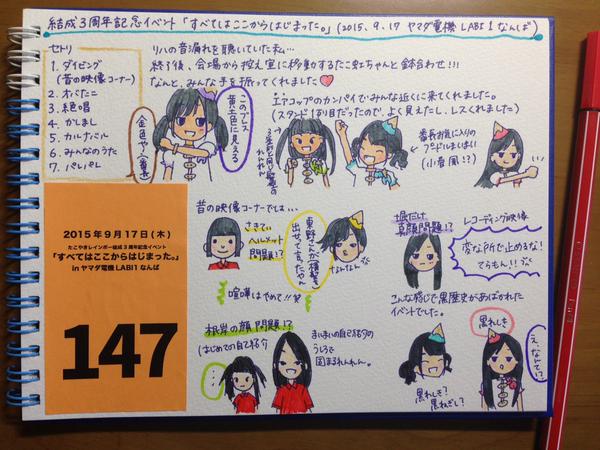 結成3周年記念イベント「すべてはここからはじまった。」(2015.9.17 ヤマダ電機 LABI1 なんば)
セトリ
1. ダイビング
(昔の映像コーナー)
2. オバたこ
3. 絶唱
4. かしまし
5. カルナバル
6. みんなのうた
7. パレパレ
リハの音漏れを聴いていた私…
終了後、会場から控え室に移動するたこ虹ちゃんと鉢合わせ!!!
なんと、みんな手を振ってくれました
このブレス
黄土色に見える
金色や!
エアコップのカンパイでみんな近くに来てくれました。
(スタンド1列目だったので、よく見えたし、レスくれました)
番長お気に入りの
プードルしまいまい
(小春風!?)
2015年9月17日(木)
たこやきレインボー結成3周年記念イベント
「すべてはここからはじまった。」
in ヤマダ電機LABI1なんば
147
昔の映像コーナーでは…
さきてぃ
ヘルメット
問題!?
東野さんが横幹を
出せって言うたやん
喧嘩はやめて!!
堀だけ
真顔問題!?
レコーディング映像
変な所で止めるな!
てらもん!!
こんな感じで黒歴史があばかれた
イベントでした。
根岸の顔問題!?
(はじめての自己紹介)
まいまいの自己紹介の
うしろで
固まるれんれん。
黒れんき?
黒ねぎし?
え、なんて!?